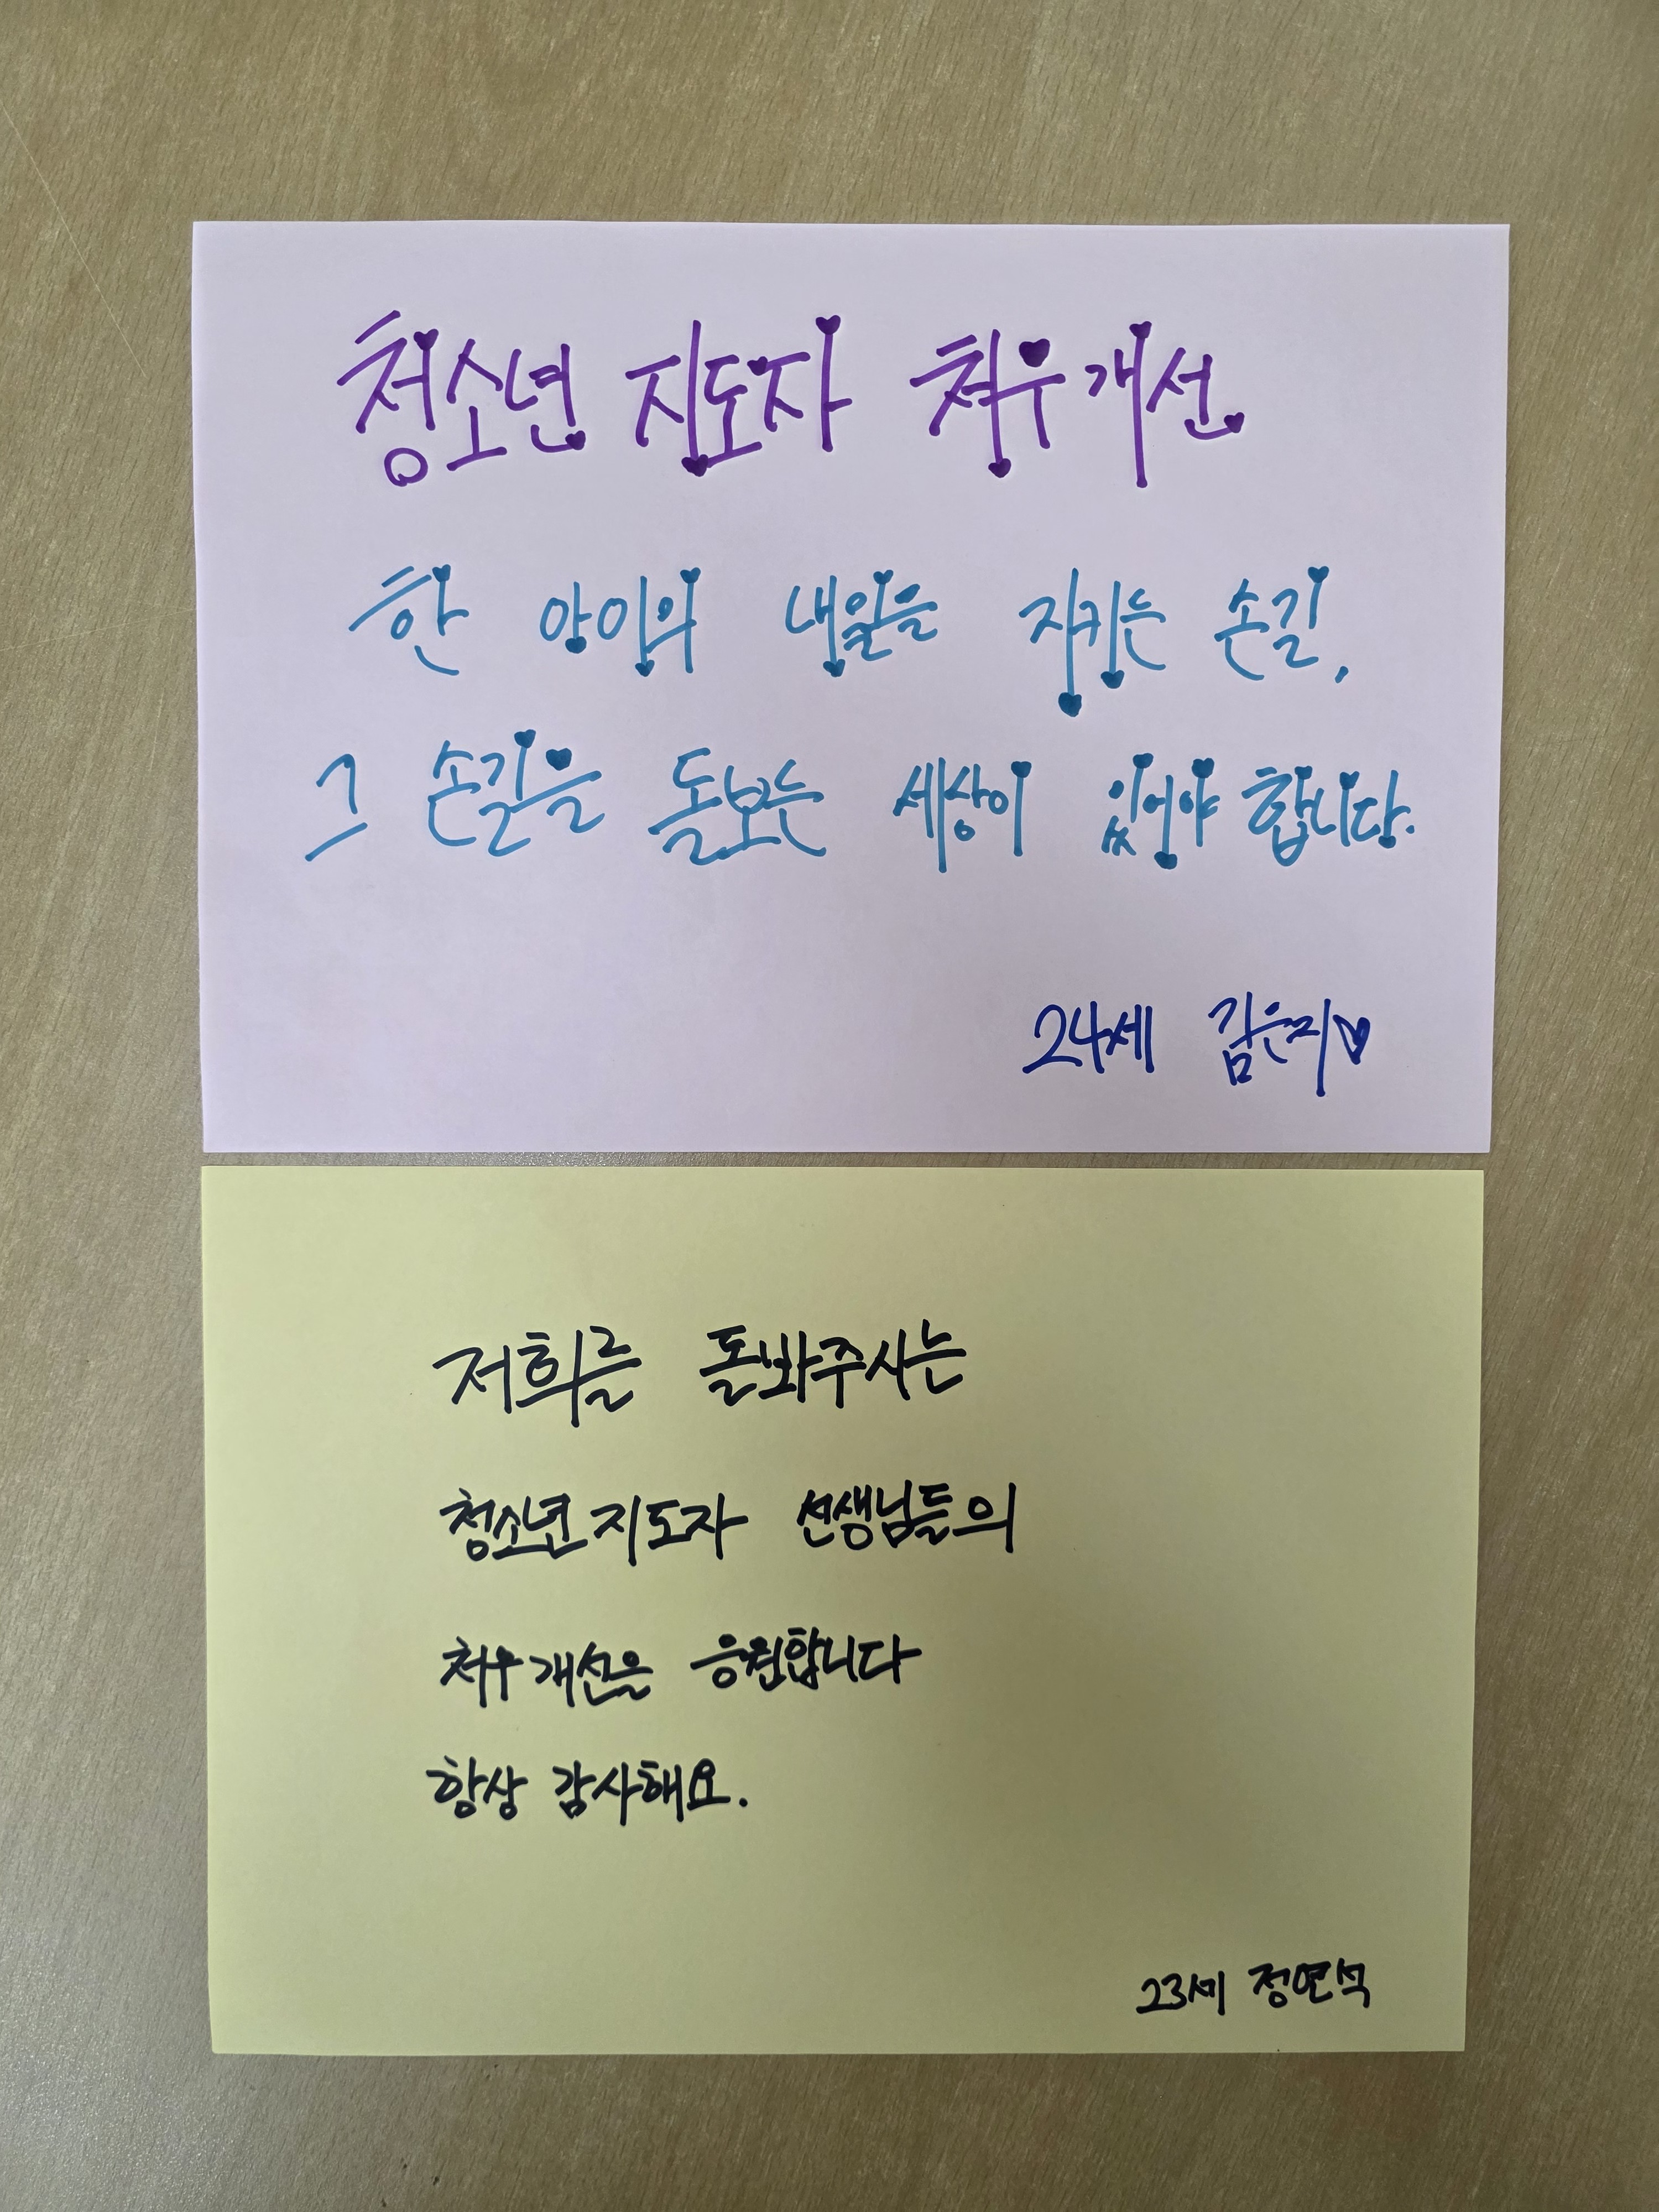 청소년 지도자 처우개선
한 아이의 내일을 지키는 손길,
그 손길을 돌보는 세상이 있어야 합니다.
24세 김은지♥
저희를 돌봐주시는
청소년 지도자 선생님들의
처우개선을 응원합니다
항상 감사해요.
23세 정연석